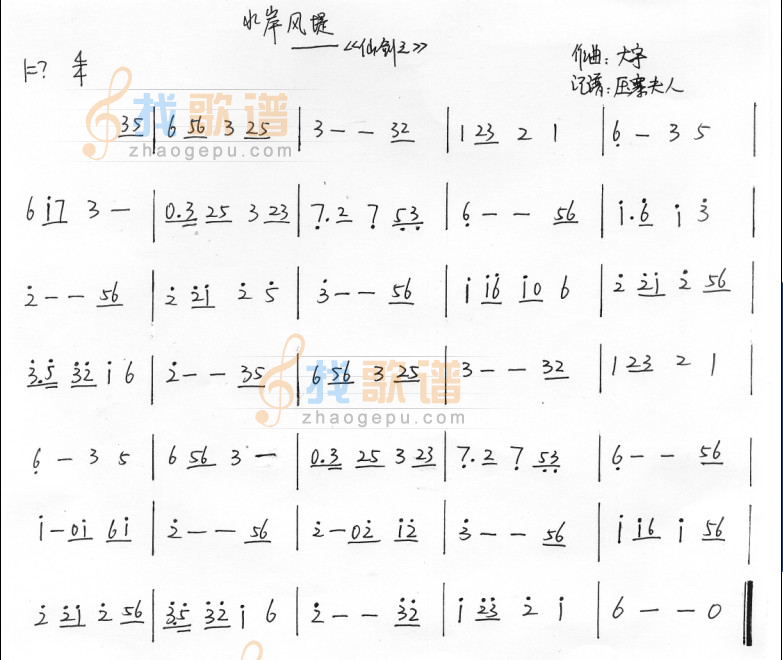 水岸风堤
——《仙剑三》
1=? 4/4
作曲：大宇
记谱：压寨夫人
35 | 6 56 3 25 | 3 - - 32 | 1 23 2 1 | 6̣ - 3 5 |
6 i̇7 3 - | 0.3 25 3 23 | 7̣.2 7̣ 5̣3̣ | 6̣ - - 56 | i̇.6̇ i̇ 3̇ |
2̇ - - 56 | 2̇ 2̇i̇ 2̇ 5̇ | 3̇ - - 56 | i̇ i̇6̇ i̇0 6 | 2̇ 2̇i̇ 2̇ 56 |
3̇.5̇ 3̇2̇ i̇ 6 | 2̇ - - 35 | 6 56 3 25 | 3 - - 32 | 1 23 2 1 |
6̣ - 3 5 | 6 56 3 - | 0.3 25 3 23 | 7̣.2 7̣ 5̣3̣ | 6̣ - - 56 |
i̇ - 0i̇ 6i̇ | 2̇ - - 56 | 2̇ - 02̇ i̇2̇ | 3̇ - - 56 | i̇ i̇6 i̇ 56 |
2̇ 2̇i̇ 2̇ 56 | 3̇.5̇ 3̇2̇ i̇ 6 | 2̇ - - 3̇2̇ | i̇ 2̇3̇ 2̇ i̇ | 6 - - 0 ‖
找歌谱
zhaogepu.com
找歌谱
zhaogepu.com